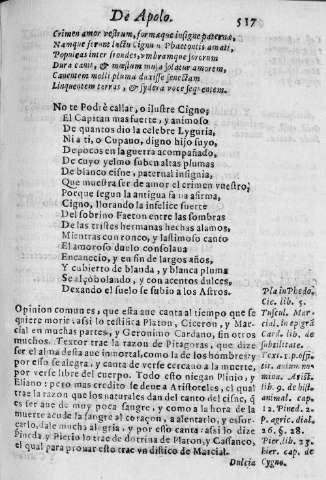 De Apolo.
517
Crimen amor vestrum, formaque insigne paternæ,
Namque ferunt luctu Cignum Phaetontis amati,
Populeas inter frondes, vmbramque sororum
Dum canit, & mœstum musa solatur amorem,
Canentem molli pluma duxisse senectam
Linquentem terras, & sydera voce sequentem.
No te Podrè callar, o ilustre Cigno,
El Capitan mas fuerte, y animoso
De quantos dio la celebre Lyguria,
Ni a ti, o Cupano, digno hijo suyo,
De pocos en la guerra acompañado,
De cuyo yelmo suben altas plumas
De blanco cisne, paternal insignia,
Que muestra ser de amor el crimen vuestro,
Porque segun la antigua fama afirma,
Cigno, llorando la infelice suerte
Del sobrino Faeton entre las sombras
De las tristes hermanas hechas alamos,
Mientras con ronco, y lastimoso canto
El amoroso duelo consolaua
Encanecio, y en fin de largos años,
Y cubierto de blanda, y blanca pluma
Se alçò bolando, y con acentos dulces,
Dexando el suelo se subio a los Astros.
Opinion comun es, que esta aue canta al tiempo que se
quiere morir: assi lo testifica Platon, Ciceron, y Mar-
cial en muchas partes, y Geronimo Cardano, sin otros
muchos. Textor trae la razon de Pitagoras, que dize
ser el alma desta aue inmortal, como la de los hombres, y
por esso se alegra, y canta de verse cercano a la muerte,
por verse libre del cuerpo. Todo esto niegan Plinio, y
Eliano: pero mas credito se deue a Aristoteles, el qual
trae la razon que los naturales dan del canto del cisne, q̃
es ser aue de muy poca sangre, y como a la hora de la
muerte acude la sangre al coraçon, a alentarlo, y esfor-
çarlo, dale mucha alegria, y por esso canta: assi lo dize
Pineda, y Pierio lo trae de dotrina de Platon, y Cassaneo,
el qual para prouar esto trae vn distico de Marcial.
Dulcia
Pla in Phedo.
Cic. lib. 5.
Tuscul. Mar-
cial, in epigrā
Card. lib. de
subtilitate.
Text. 1. p. offi.
tit. anim. no-
mina. Aristo.
lib. 9. de hist.
animal. cap.
12. Pined. 2.
p. agric. dial.
26. §. 28.
Pier. lib. 23.
hier. cap. de
Cygno.